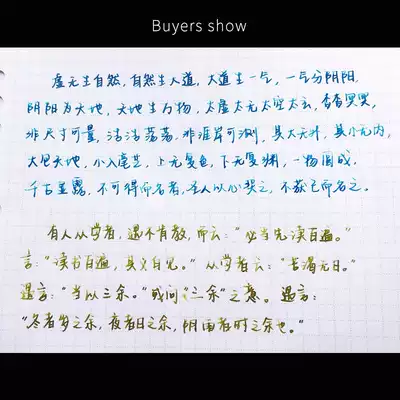 Buyers show
虚无生自然，自然生大道，大道生一气，一气分阴阳，
阴阳为天地，天地生万物，太虚太无太空太玄，杳杳冥冥，
非尺寸可量，浩浩荡荡，非涯岸可测，其大无外，其小无内，
大包天地，小入毫芒，上无复色，下无复渊，一物圆成，
千古显露，不可得而名者，圣人以心契之，不获已而名之。
有人从学者，遇不肯教，而云："必当先读百遍。"
言："读书百遍，其义自见。"从学者云："苦渴无日。"
遇言："当以三余。"或问"三余"之意。遇言：
"冬者岁之余，夜者日之余，阴雨者时之余也。"